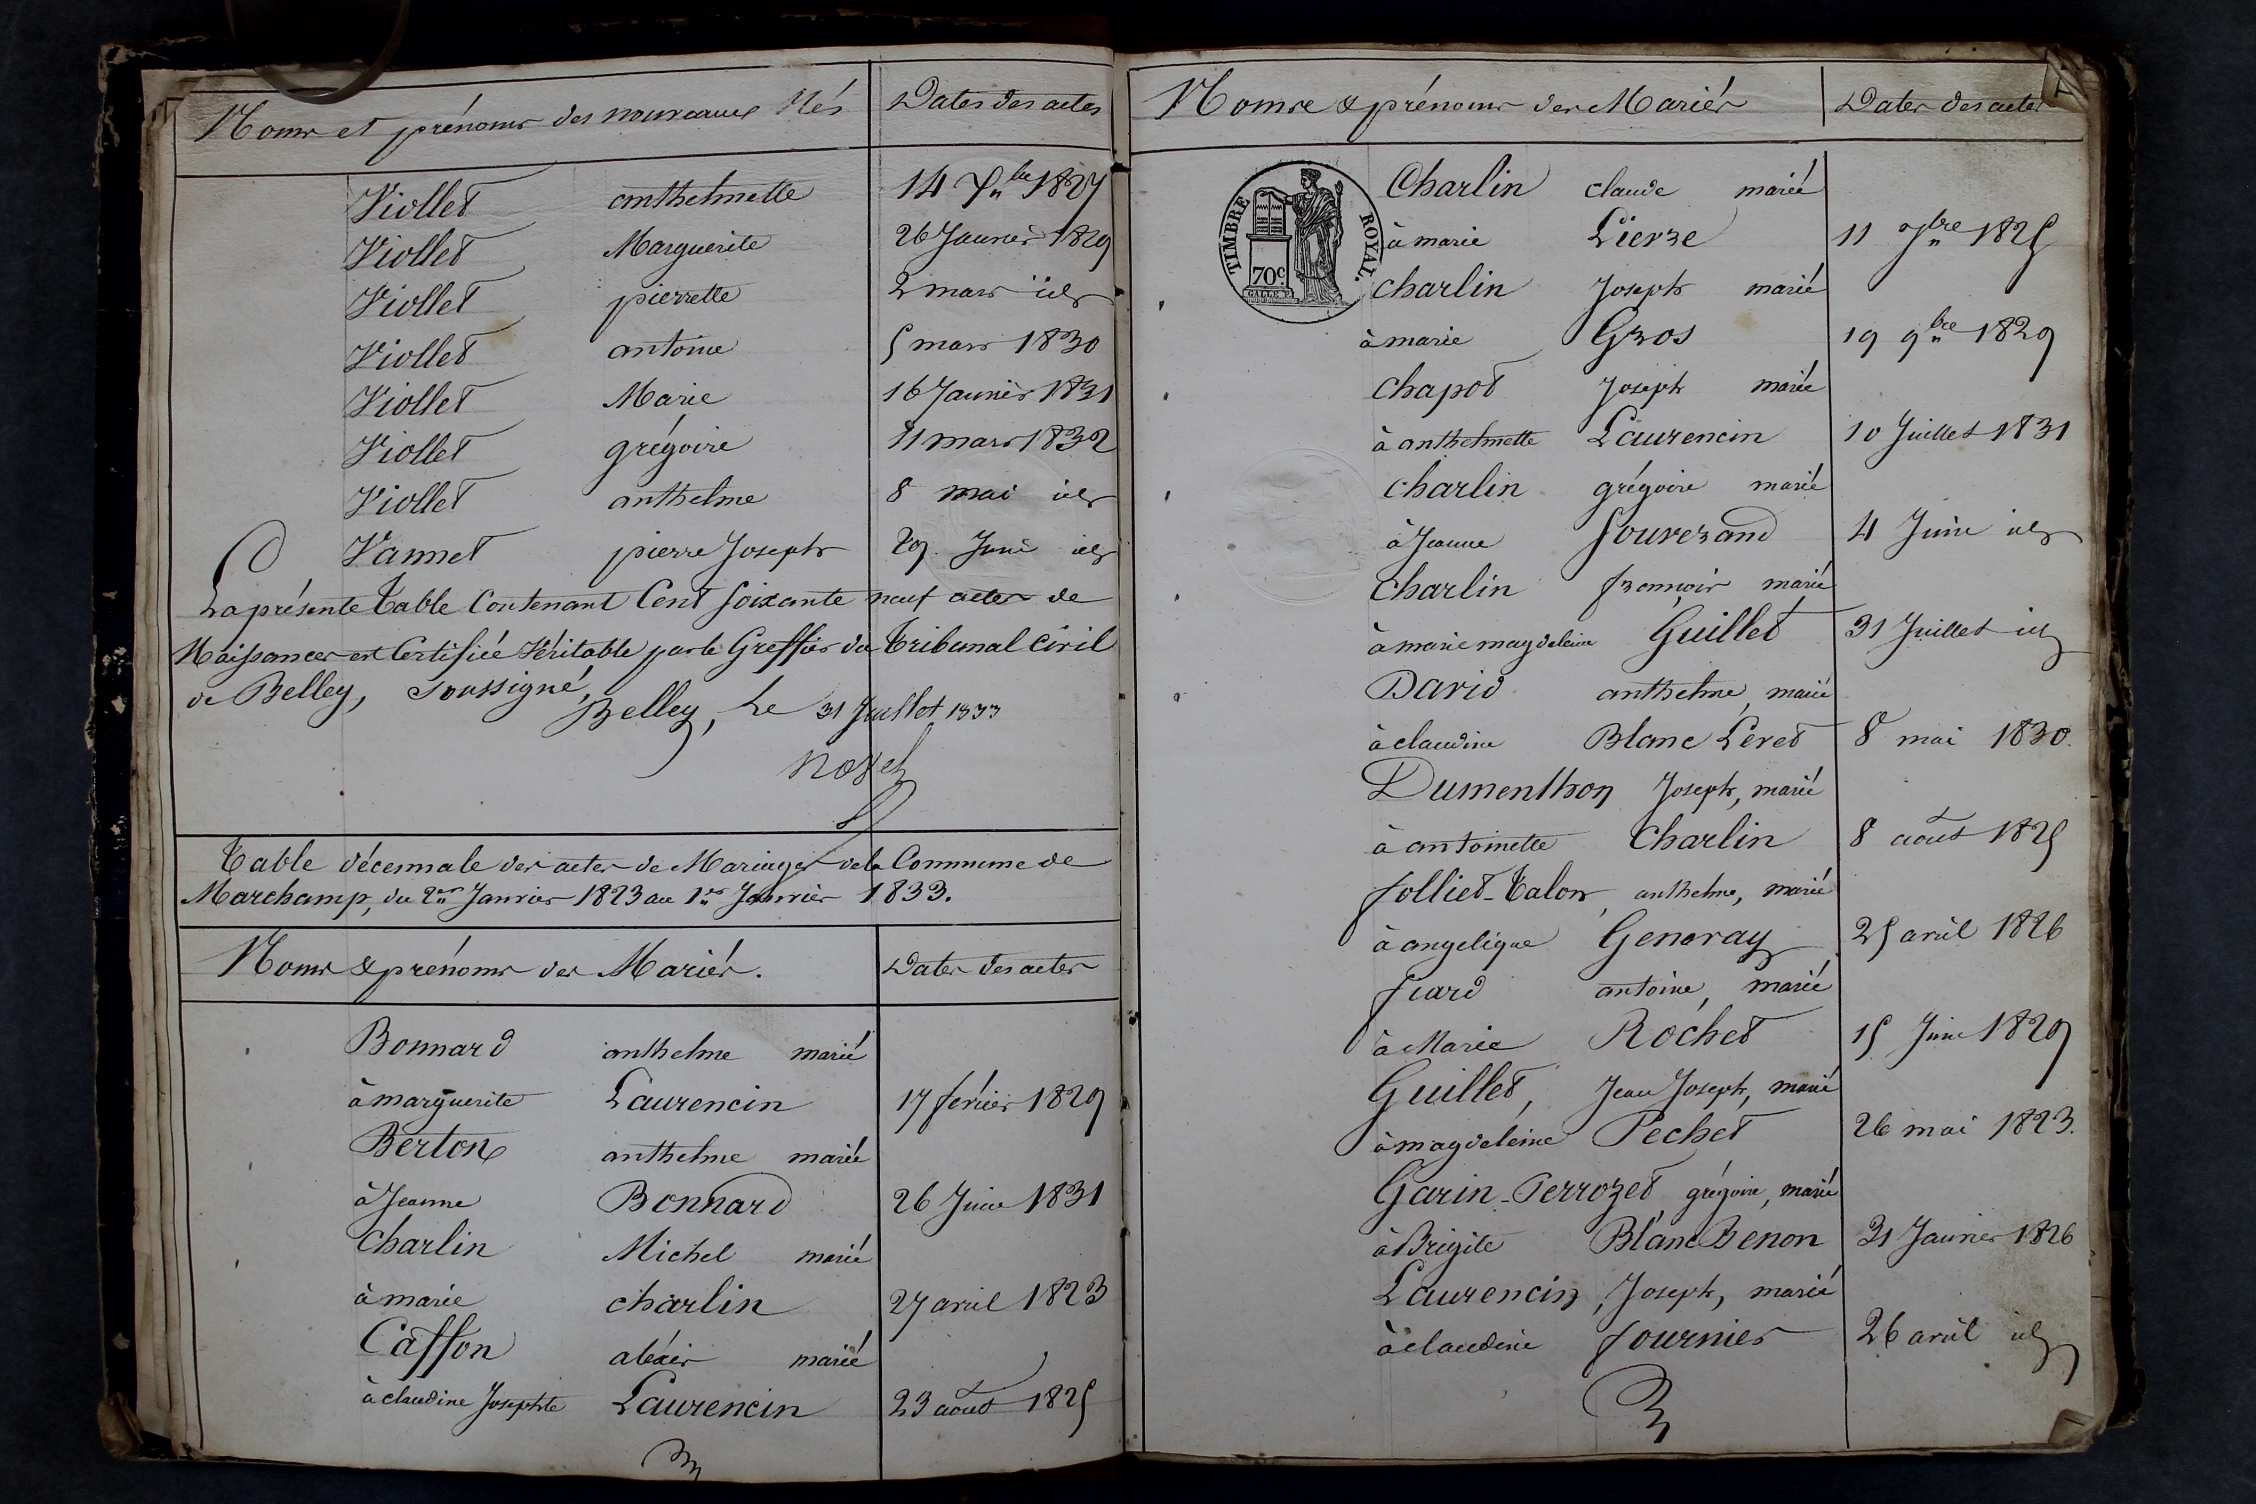 Noms et prénoms des nouveaux Nés Dates des actes
Viollet anthelmette 14 7bre 1827
Viollet Marguerite 26 Janvier 1829
Viollet pierrette 2 mars id
Viollet antoine 5 mars 1830
Viollet Marie 16 Janvier 1831
Viollet grégoire 11 mars 1832
Viollet anthelme 8 mai id
Vannet pierre Joseph 29 Juin id
La présente Table Contenant Cent soixante neuf actes de
Naissances est Certifiée Véritable par le Greffier du Tribunal Civil
de Belley, soussigné,
Belley, Le 31 Juillet 1833
Table décennale des actes de Mariages de la Commune de
Marchamp, du 2er Janvier 1823 au 1er Janvier 1833.
Noms & prénoms des Mariés. Dates des actes
Bonnard anthelme marié
à marguerite Laurencin 17 février 1829
Berton anthelme marié
à Jeanne Bonnard 26 Juin 1831
Charlin Michel marié
à marie charlin 27 avril 1823
Caffon aléxis marié
à claudine Josephte Laurencin 23 août 1825
Noms & prénoms des Mariés Dates des actes
TIMBRE ROYAL.
70c
Charlin claude marié
à marie Lierze 11 7bre 1825
charlin Joseph marié
à marie Gros 19 9bre 1829
chapot Joseph marié
à anthelmette Laurencin 10 Juillet 1831
charlin grégoire marié
à Jeanne Souverand 4 Juin id
charlin françois marié
à marie magdeleine Guillet 31 Juillet id
David anthelme, marié
à claudine Blanc Leret 8 mai 1830.
Dumenthon Joseph, marié
à antoinette Charlin 8 août 1825
folliet-Talon, anthelme, marié
à angelique Genevray 25 avril 1826
fiard antoine, marié
à Marie Rochet 15 Juin 1829
Guillet, Jean Joseph, marié
à magdeleine Pechet 26 mai 1823.
Garin-Perrozet, grégoire, marié
à Brigite Blanc Benon 31 Janvier 1826
Laurencin, Joseph, marié
à claudine fournier 26 avril id